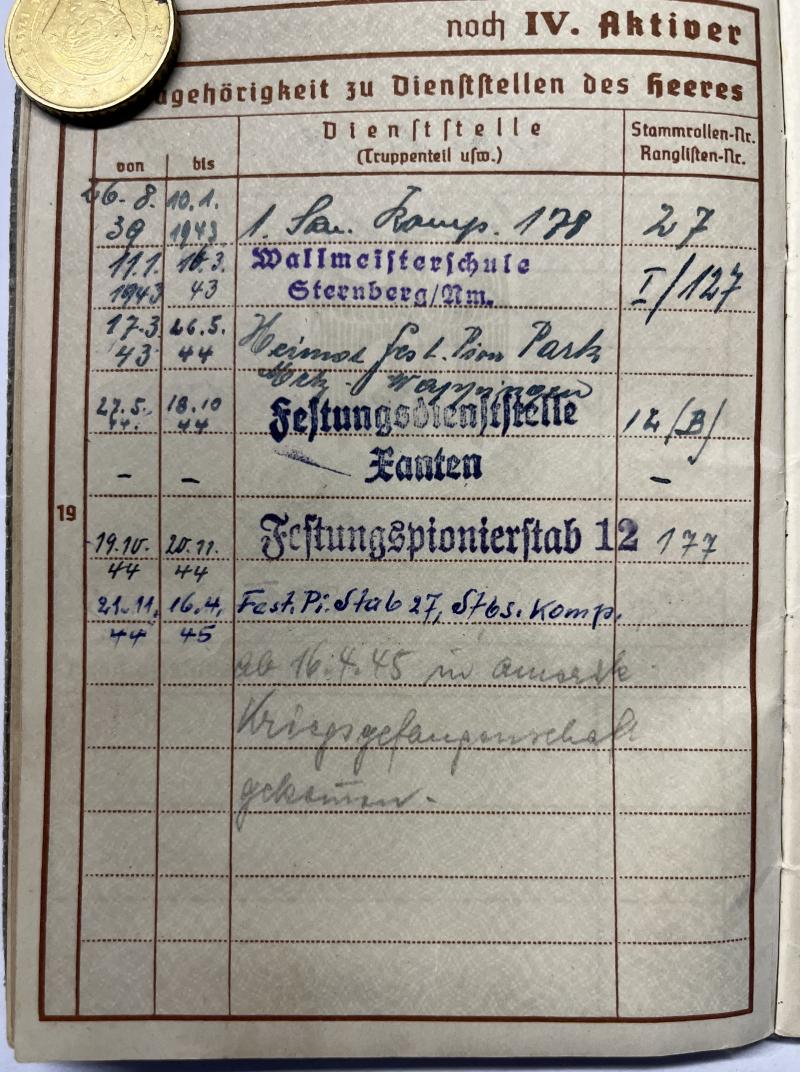 noch IV. Aktiver
gehörigkeit zu Dienststellen des Heeres
Dienststelle
(Truppenteil usw.)
Stammrollen-Nr.
Ranglisten-Nr.
von bis
26.8. 10.1.
39 1943 1. San. Komp. 178 27
11.1. 16.3. Wallmeisterschule
1943 43 Sternberg/Nm. I/127
17.3. 26.5. Heimat Park
43 44
27.5. 18.10 Festungsdienststelle 12/(B)
44. 44
– – Xanten –
19
19.10. 20.11. Festungspionierstab 12 177
44 44
21.11. 16.4. Fest. Pi. Stab 27, Stbs. Komp.
44 45
ab 16.4.45 in amerik.
Kriegsgefangenschaft
gekommen.